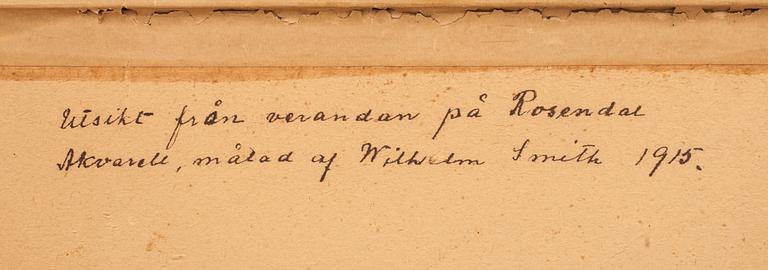 Utsikt från verandan på Rosendal
Akvarell, målad af Wilhelm Smith 1915.